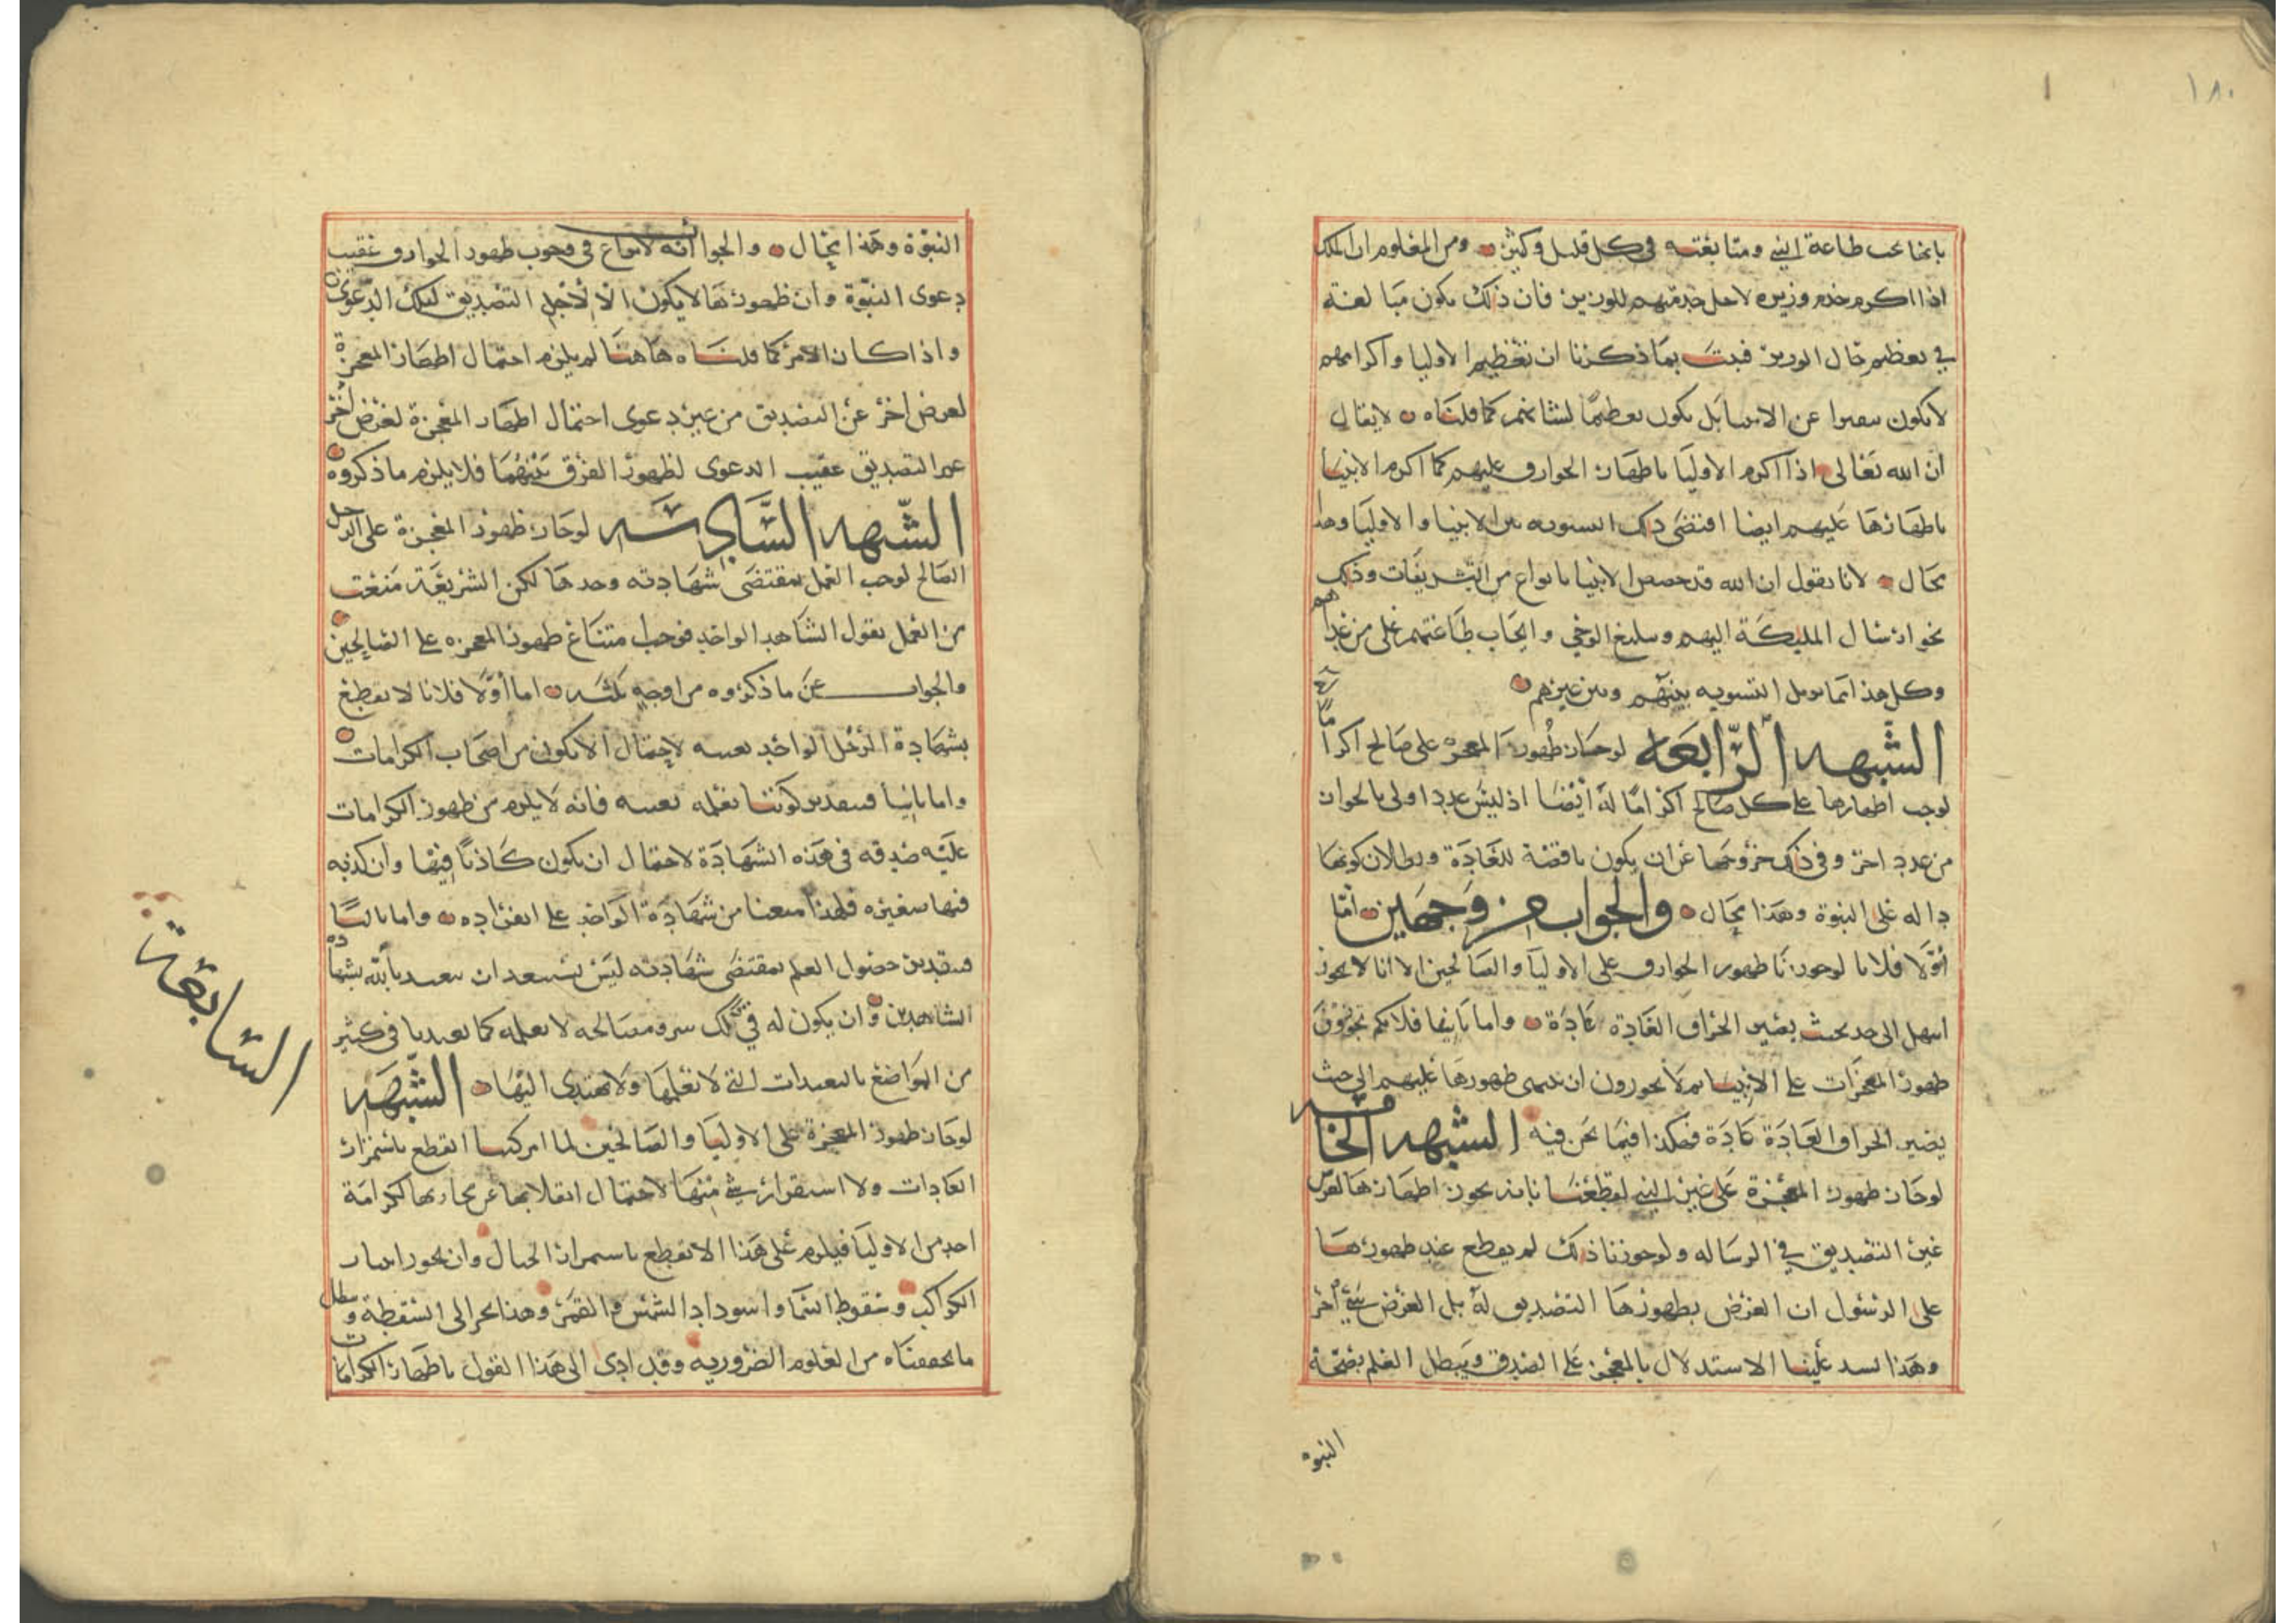 ١٨٠
بايجاب طاعة النبي ومتابعته في كل قليل وكثير ومن المعلوم ان الملك
اذا اكرم خدم وزيره لاجل خدمتهم للوزير فان ذلك يكون مبالغة
في تعظيم حال الوزير فثبت بما ذكرنا ان تعظيم الاوليا واكرامهم
لا يكون عن الانبيا بل يكون تعظيما لشانهم كما قلناه لا يقال
ان الله تعالى اذا اكرم الاوليا باظهار الخوارق عليهم كما اكرم الانبيا
باظهارها عليهم ايضا اقتضى ذلك التسويه بين الانبيا والاوليا وهذا
محال لانا نقول ان الله قد خصص الانبيا بانواع من التشريفات وذلك
نحو ارسال المليكة اليهم وتبليغ الوحي وايجاب طاعتهم على من عداهم
وكل هذا مما يزيل التسويه بينهم وبين غيرهم
الشبهه الرابعه لو جاز ظهور المعجزه على صالح اكراما له
لوجب اظهارها على كل صالح اكراما له ايضا اذ ليس عدد اولى بالجواز
من عدد اخر وفي ذلك خروجها عن ان يكون ناقضة للعادة وبطلان كونها
داله على النبوة وهذا محال والجواب من وجهين اما
اولا فلانا لو جوزنا ظهور الخوارق على الاوليا والصالحين الا انا لا نجوز
الى حد بحيث يصير انخراق العادة عادة واما ثانيا فلانكم تجوزون
ظهور المعجزات على الانبيا ثم لا تجوزون ان ينتهى ظهورها عليهم الى حيث
يصير انخراق العادة عادة فهكذا فيما نحن فيه الشبهه الخامسه
لو جاز ظهور المعجزة على غير النبي لقطعنا بانه يجوز اظهارها لغرض
غير التصديق في الرساله ولو جوزنا ذلك لم يقطع عند ظهورها
على الرسول ان الغرض بظهورها التصديق له بل الغرض شي اخر
وهذا يسد علينا الاستدلال بالمعجز على الصدق ويبطل العلم بصحة
النبوة
النبوة وهذا محال والجواب انه لا نزاع في وجوب ظهور الخوارق عقيب
دعوى النبوة وان ظهورها لا يكون الا لاجل التصديق لتلك الدعوى
واذا كان الامر كما قلناه هاهنا لم يلزم احتمال اظهار المعجزة
لغرض اخر عن التصديق من غير دعوى احتمال اظهار المعجزة لغرض اخر
غير التصديق عقيب الدعوى لظهور الفرق بينهما فلا يلزم ما ذكروه
الشبهه السادسه لو جاز ظهور المعجزة على الرجل
الصالح لوجب العمل بمقتضى شهادته وحدها لكن الشريعة منعت
من العمل بقول الشاهد الواحد فوجب امتناع ظهور المعجزه على الصالحين
والجواب عن ما ذكروه من اوجه ثلثه اما اولا فلانا لا نقطع
بشهادة الرجل الواحد بعينه لاحتمال الا يكون من اصحاب الكرامات
واما ثانيا فبتقدير كوننا نعلمه بعينه فانه لا يلزم من ظهور الكرامات
عليه صدقه في هذه الشهادة لاحتمال ان يكون كاذبا فيها وان كذبه
فيها صغيره فلهذا منعنا من شهادة الواحد على انفراده واما ثالثا
فبتقدير حصول العلم بمقتضى شهادته ليس يستبعد ان يتعبدنا الله بشهادة
الشاهدين وان يكون له في ذلك سر ومصالحه لا نعلمه كما تعبدنا في كثير
من المواضع بالتعبدات التي لا نعلمها ولا نهتدى اليها الشبهه
السابعة
لو جاز ظهور المعجزة على الاوليا والصالحين لما امكننا القطع باستمرار
العادات ولا استقرار شي منها لاحتمال انقلابها عن مجاريها لكرامة
احد من الاوليا فيلزم على هذا الا نقطع باستمرار الجبال وان نجوز انتثار
الكواكب وسقوط السما واسوداد الشمس والقمر وهذا يجر الى السفسطة ويبطل
ما تحققناه من العلوم الضروريه وقد ادى الى هذا القول باظهار الكرامات